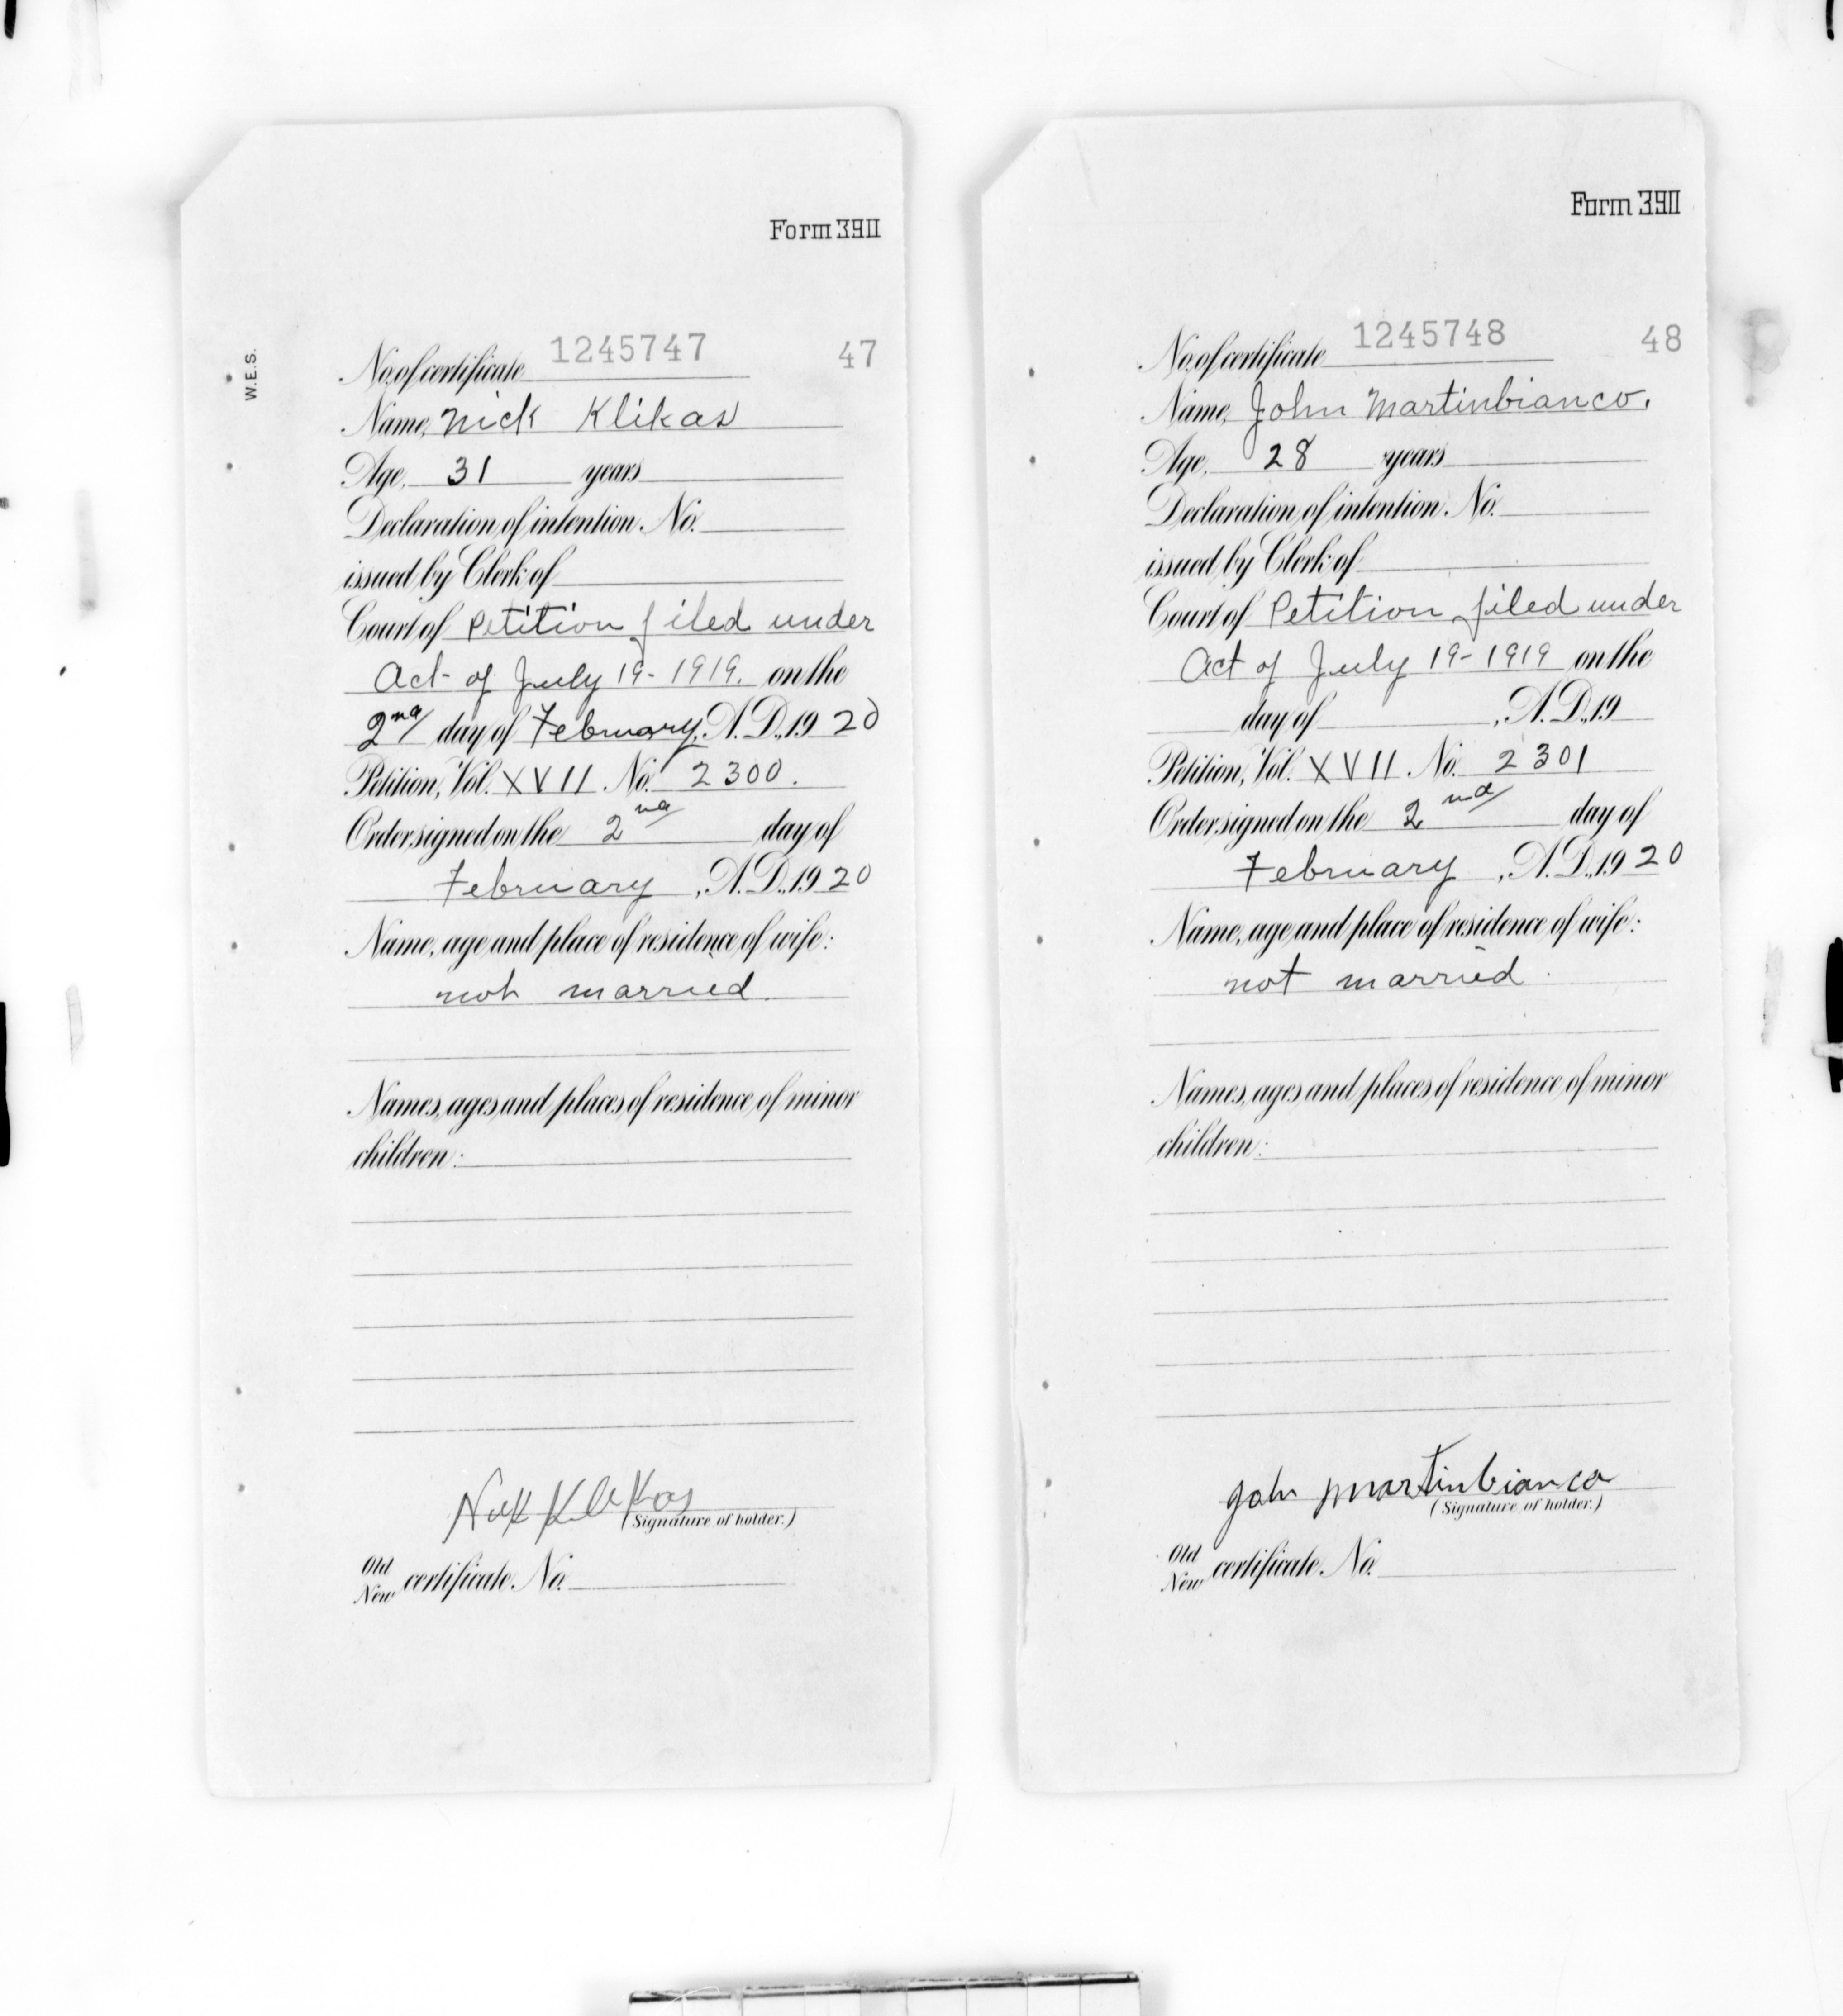 Form 3911
W.E.S.
No. of certificate 1245747 47
Name, Nick Klikas
Age, 31 years
Declaration of intention No.
issued by Clerk of
Court of Petition filed under
Act of July 19-1919. on the
2nd day of February, A.D., 1920
Petition, Vol. XVII No. 2300.
Order signed on the 2nd day of
February, A.D., 1920
Name, age and place of residence of wife:
not married.
Names, ages and places of residence of minor
children:
Nick Klikas
(Signature of holder.)
Old
New certificate No.
Form 3911
No. of certificate 1245748 48
Name, John Martinbianco.
Age, 28 years
Declaration of intention No.
issued by Clerk of
Court of Petition filed under
Act of July 19-1919 on the
day of , A.D., 19
Petition, Vol. XVII No. 2301
Order signed on the 2nd day of
February, A.D., 1920
Name, age and place of residence of wife:
not married.
Names, ages and places of residence of minor
children:
John Martinbianco
(Signature of holder.)
Old
New certificate No.